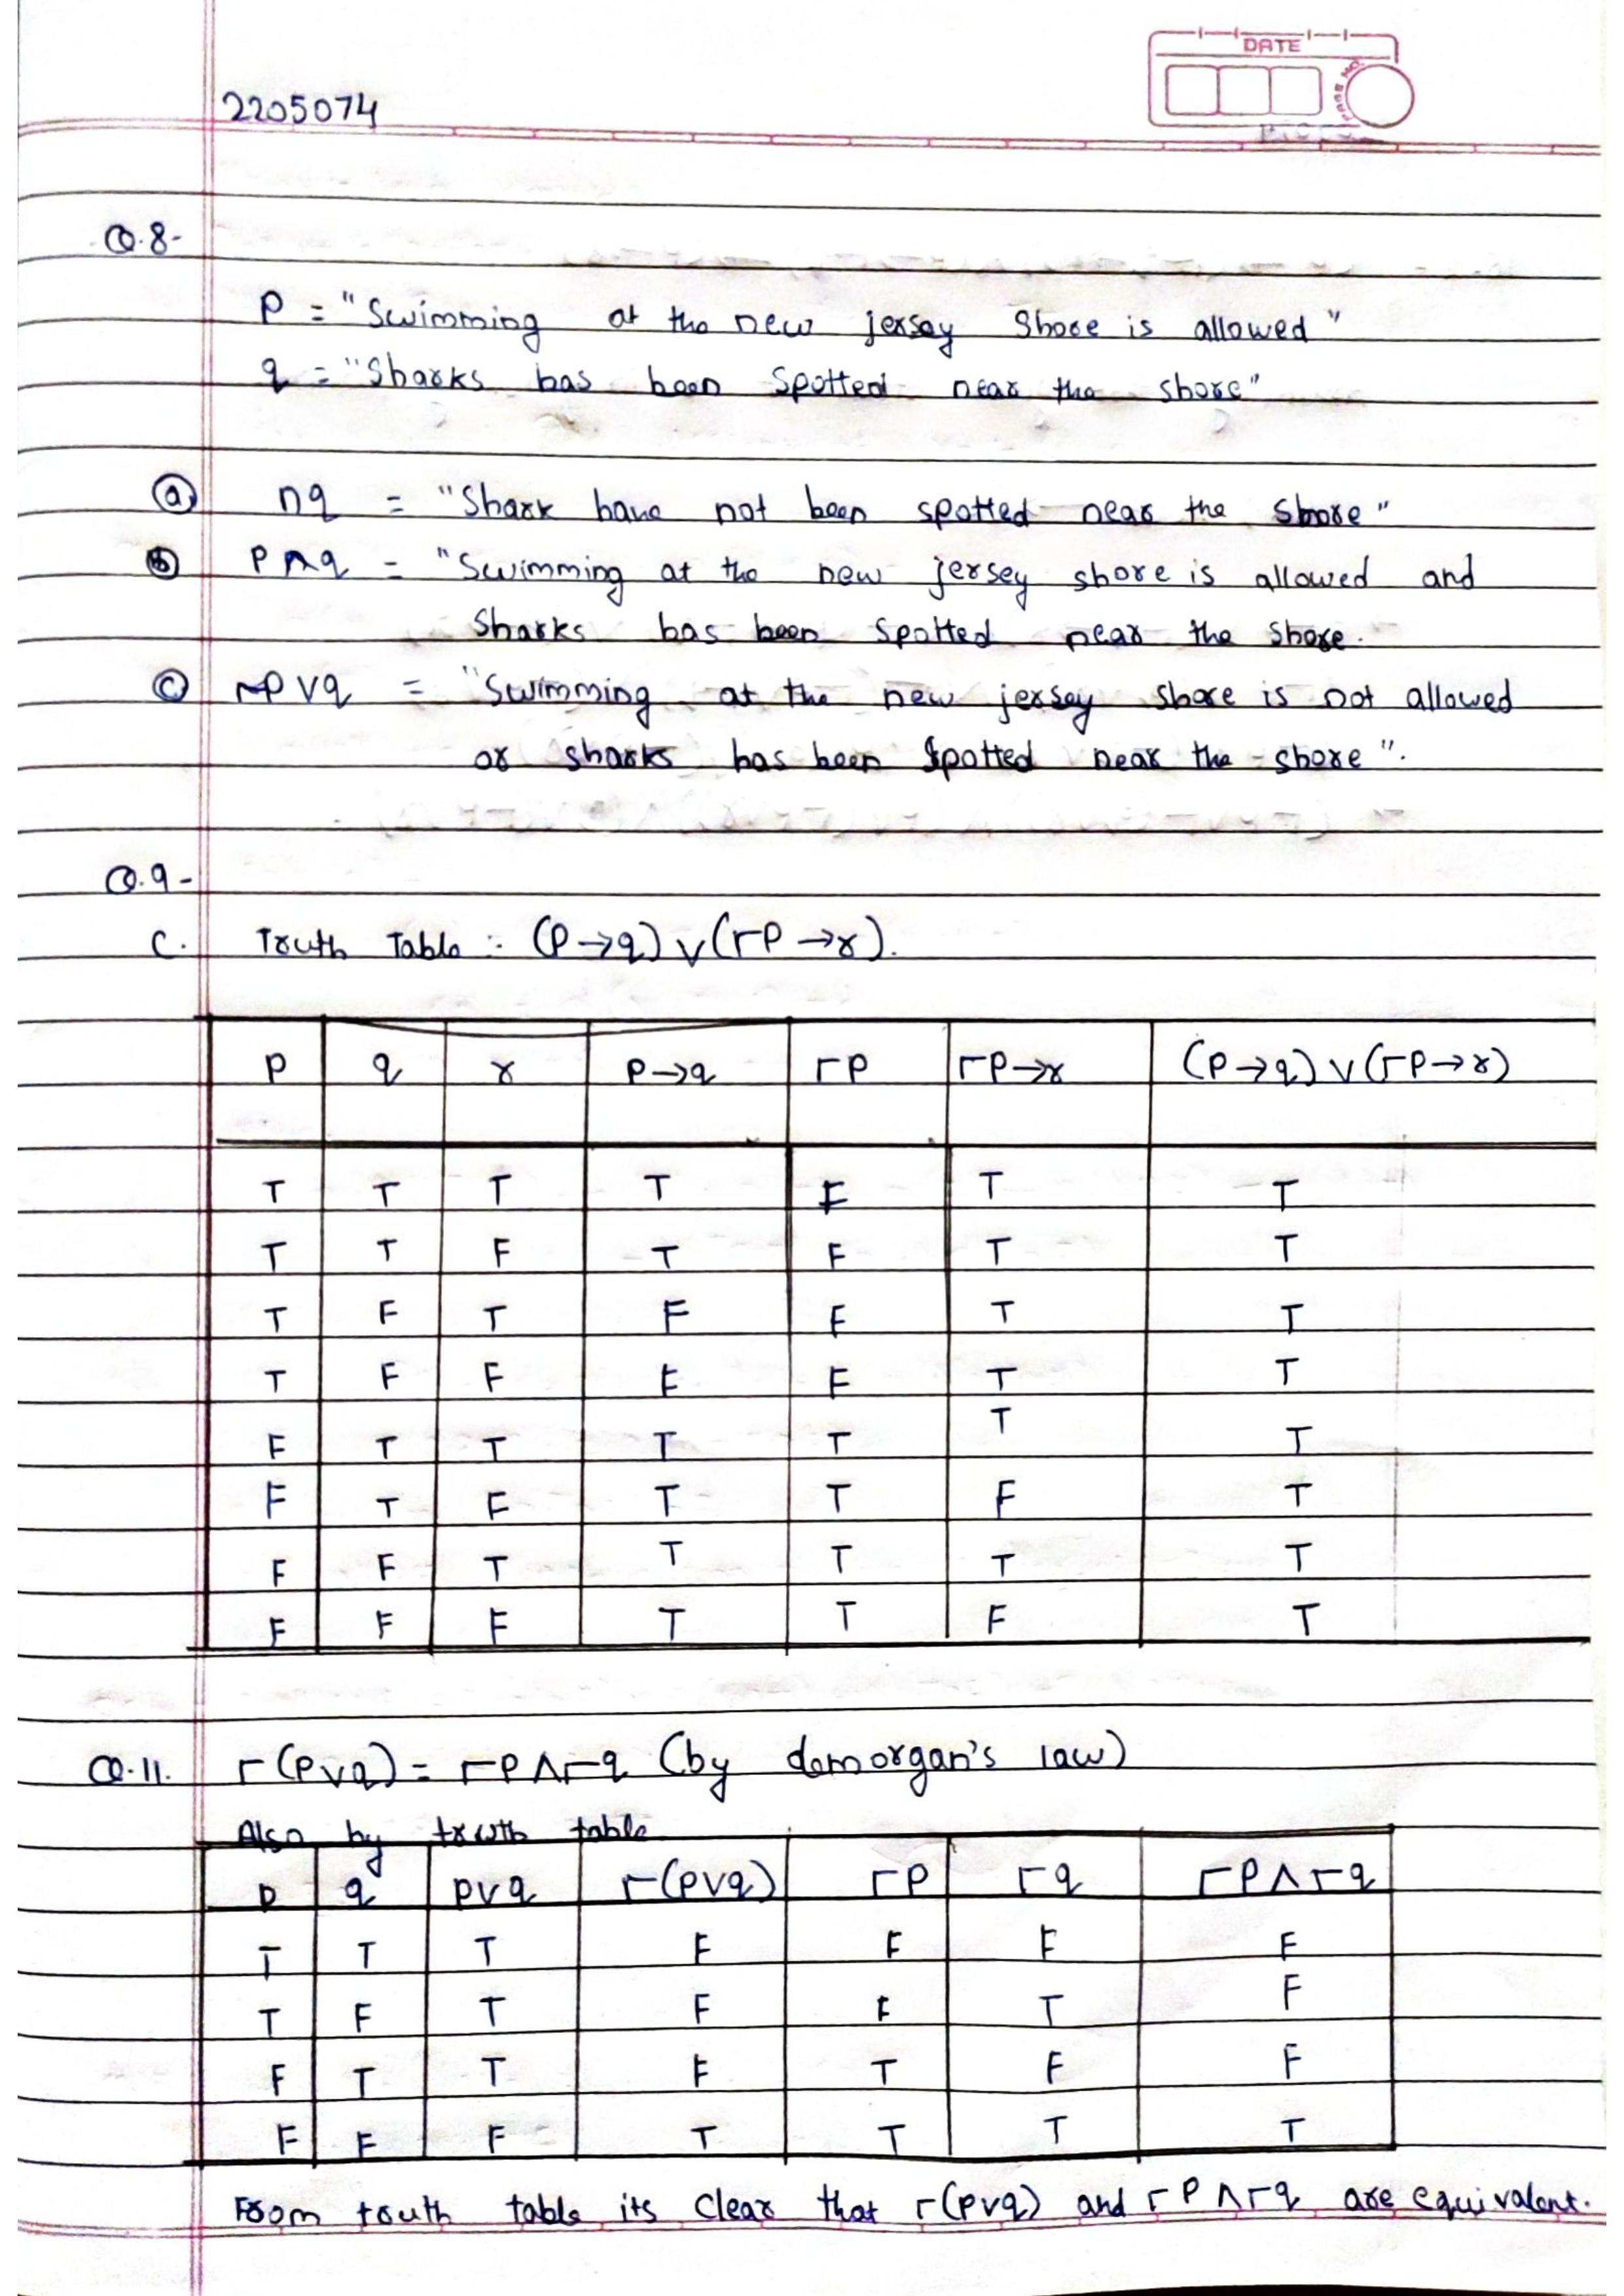 DATE
PAGE NO.
2205074
Q.8-
P = "Swimming at the new jersey shore is allowed"
q = "Sharks has been spotted near the shore"
(a) ¬q = "Shark have not been spotted near the shore"
(b) P∧q = "Swimming at the new jersey shore is allowed and
Sharks has been spotted near the shore.
(c) ¬P∨q = "Swimming at the new jersey shore is not allowed
or sharks has been spotted near the shore".
Q.9-
C. Truth Table :- (P→q)∨(¬P→r).
P q r P→q ¬P ¬P→r (P→q)∨(¬P→r)
T T T T F T T
T T F T F T T
T F T F F T T
T F F F F T T
F T T T T T T
F T F T T F T
F F T T T T T
F F F T T F T
Q.11. ¬(P∨q) = ¬P∧¬q (by demorgan's law)
Also by truth table
P q P∨q ¬(P∨q) ¬P ¬q ¬P∧¬q
T T T F F F F
T F T F F T F
F T T F T F F
F F F T T T T
From truth table its clear that ¬(P∨q) and ¬P∧¬q are equivalent.